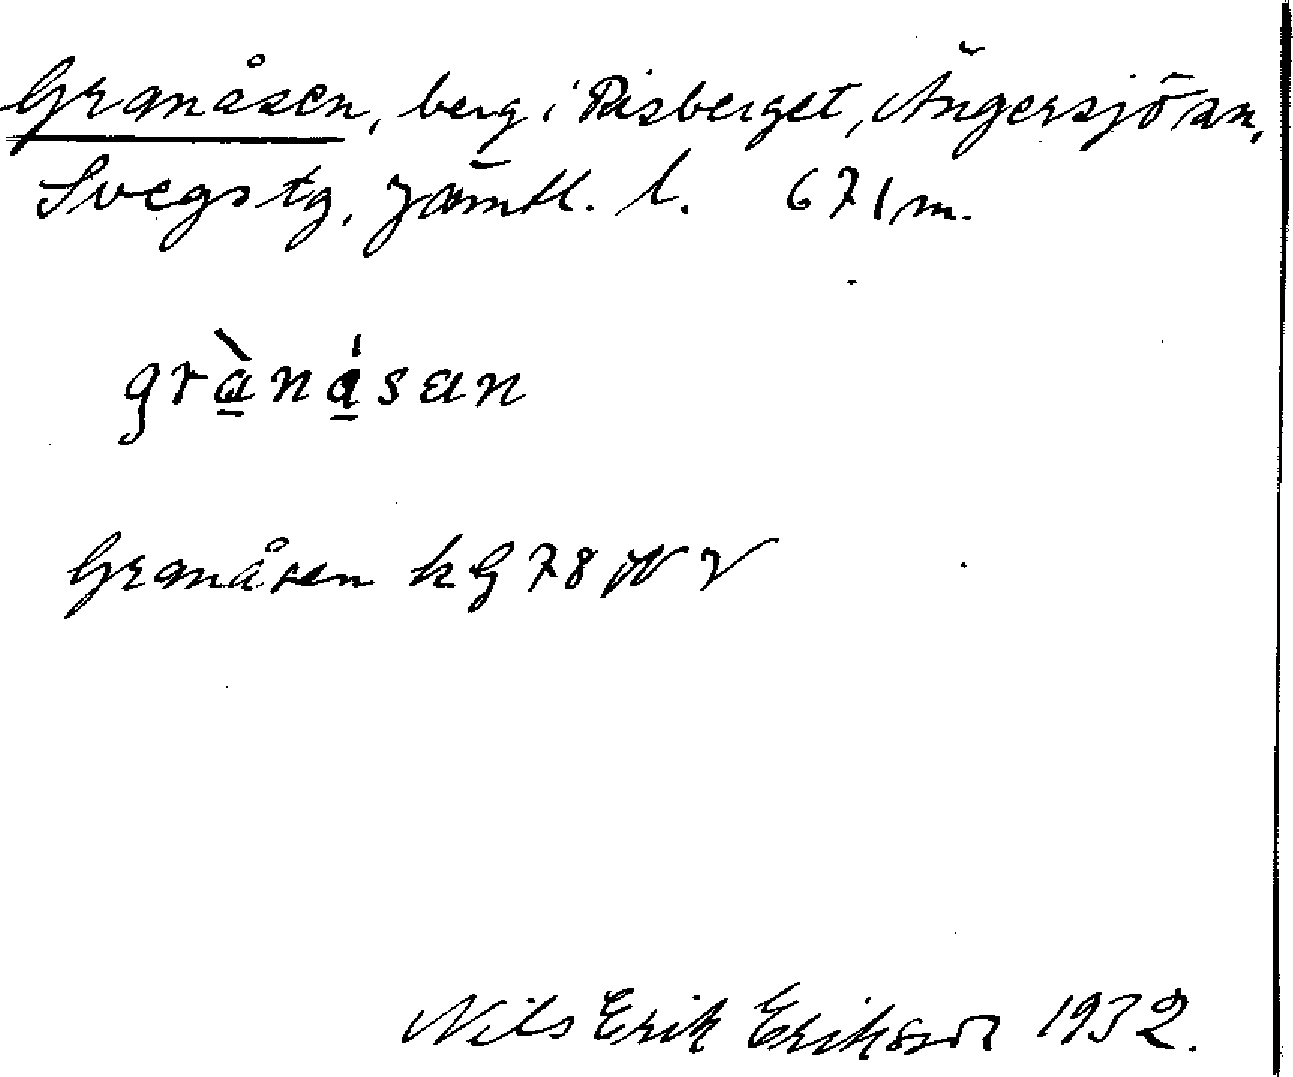 Granåsen, berg i Risberget, Ängersjö sn,
Svegs tg, Jämtl. l. 671 m.
grànásan
Granåsen k G 78 NV
Nils Erik Erikson 1932.